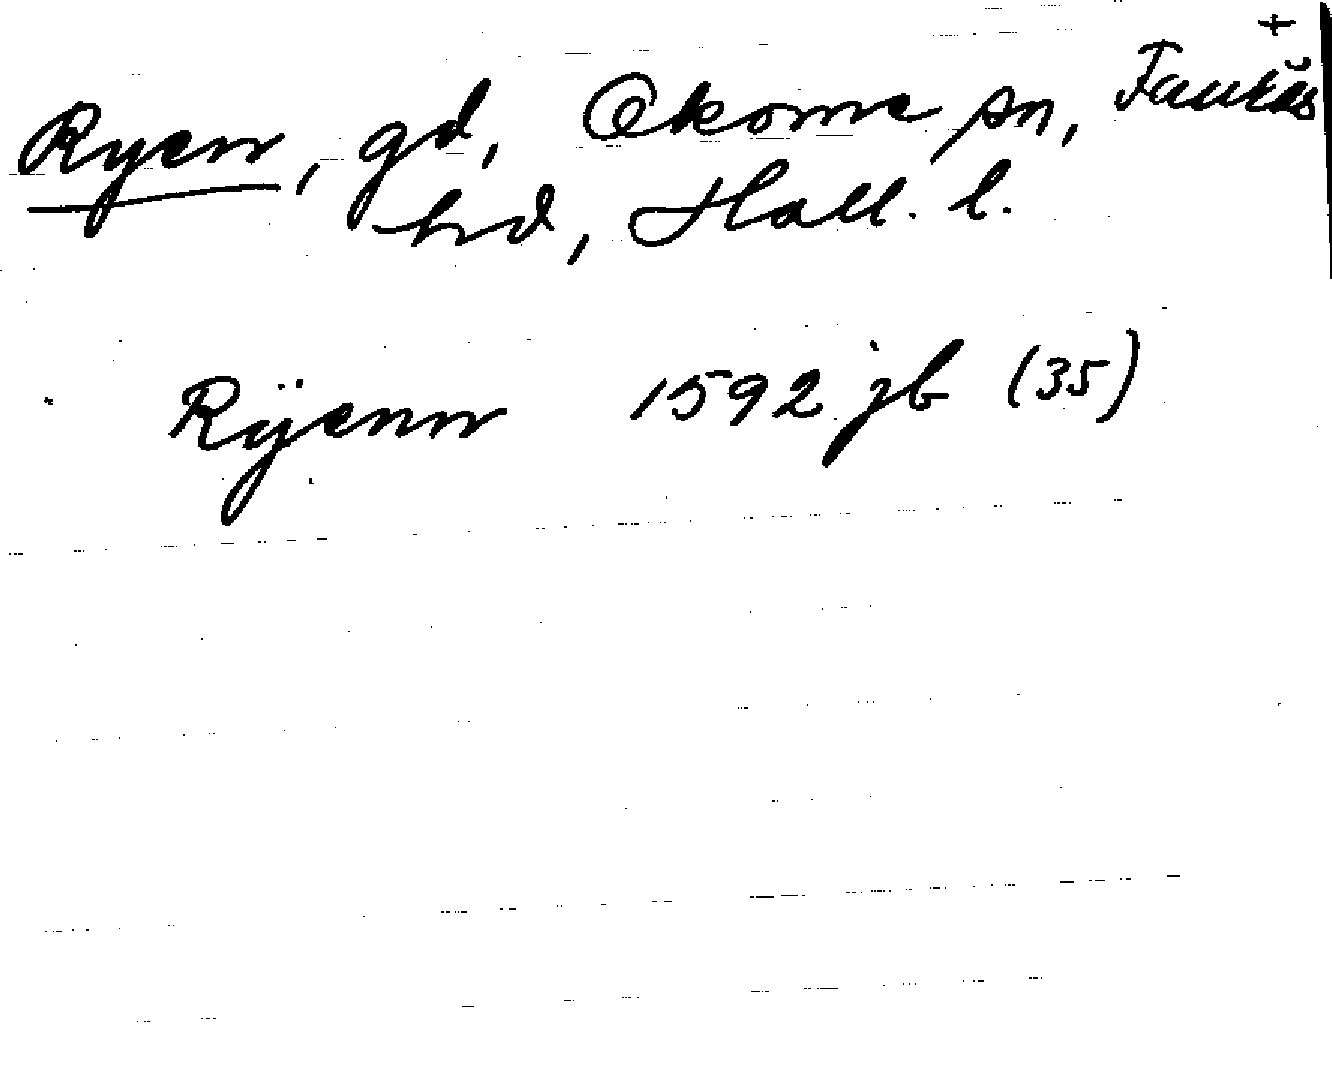 +
Ryen, gd, Okome sn, Faurås
hd, Hall. l.
Rÿenn 1592 jb (35)